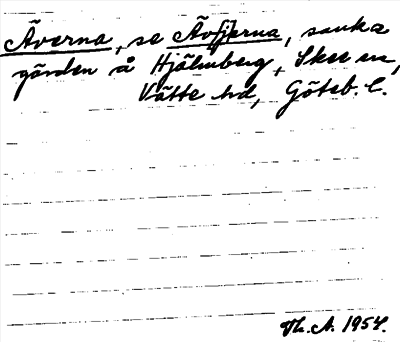 Äverna, se Ävfjerna, sanka
gärden å Hjälmberg, Skee sn,
Vätte hd, Göteb. l.
Th. A. 1954.